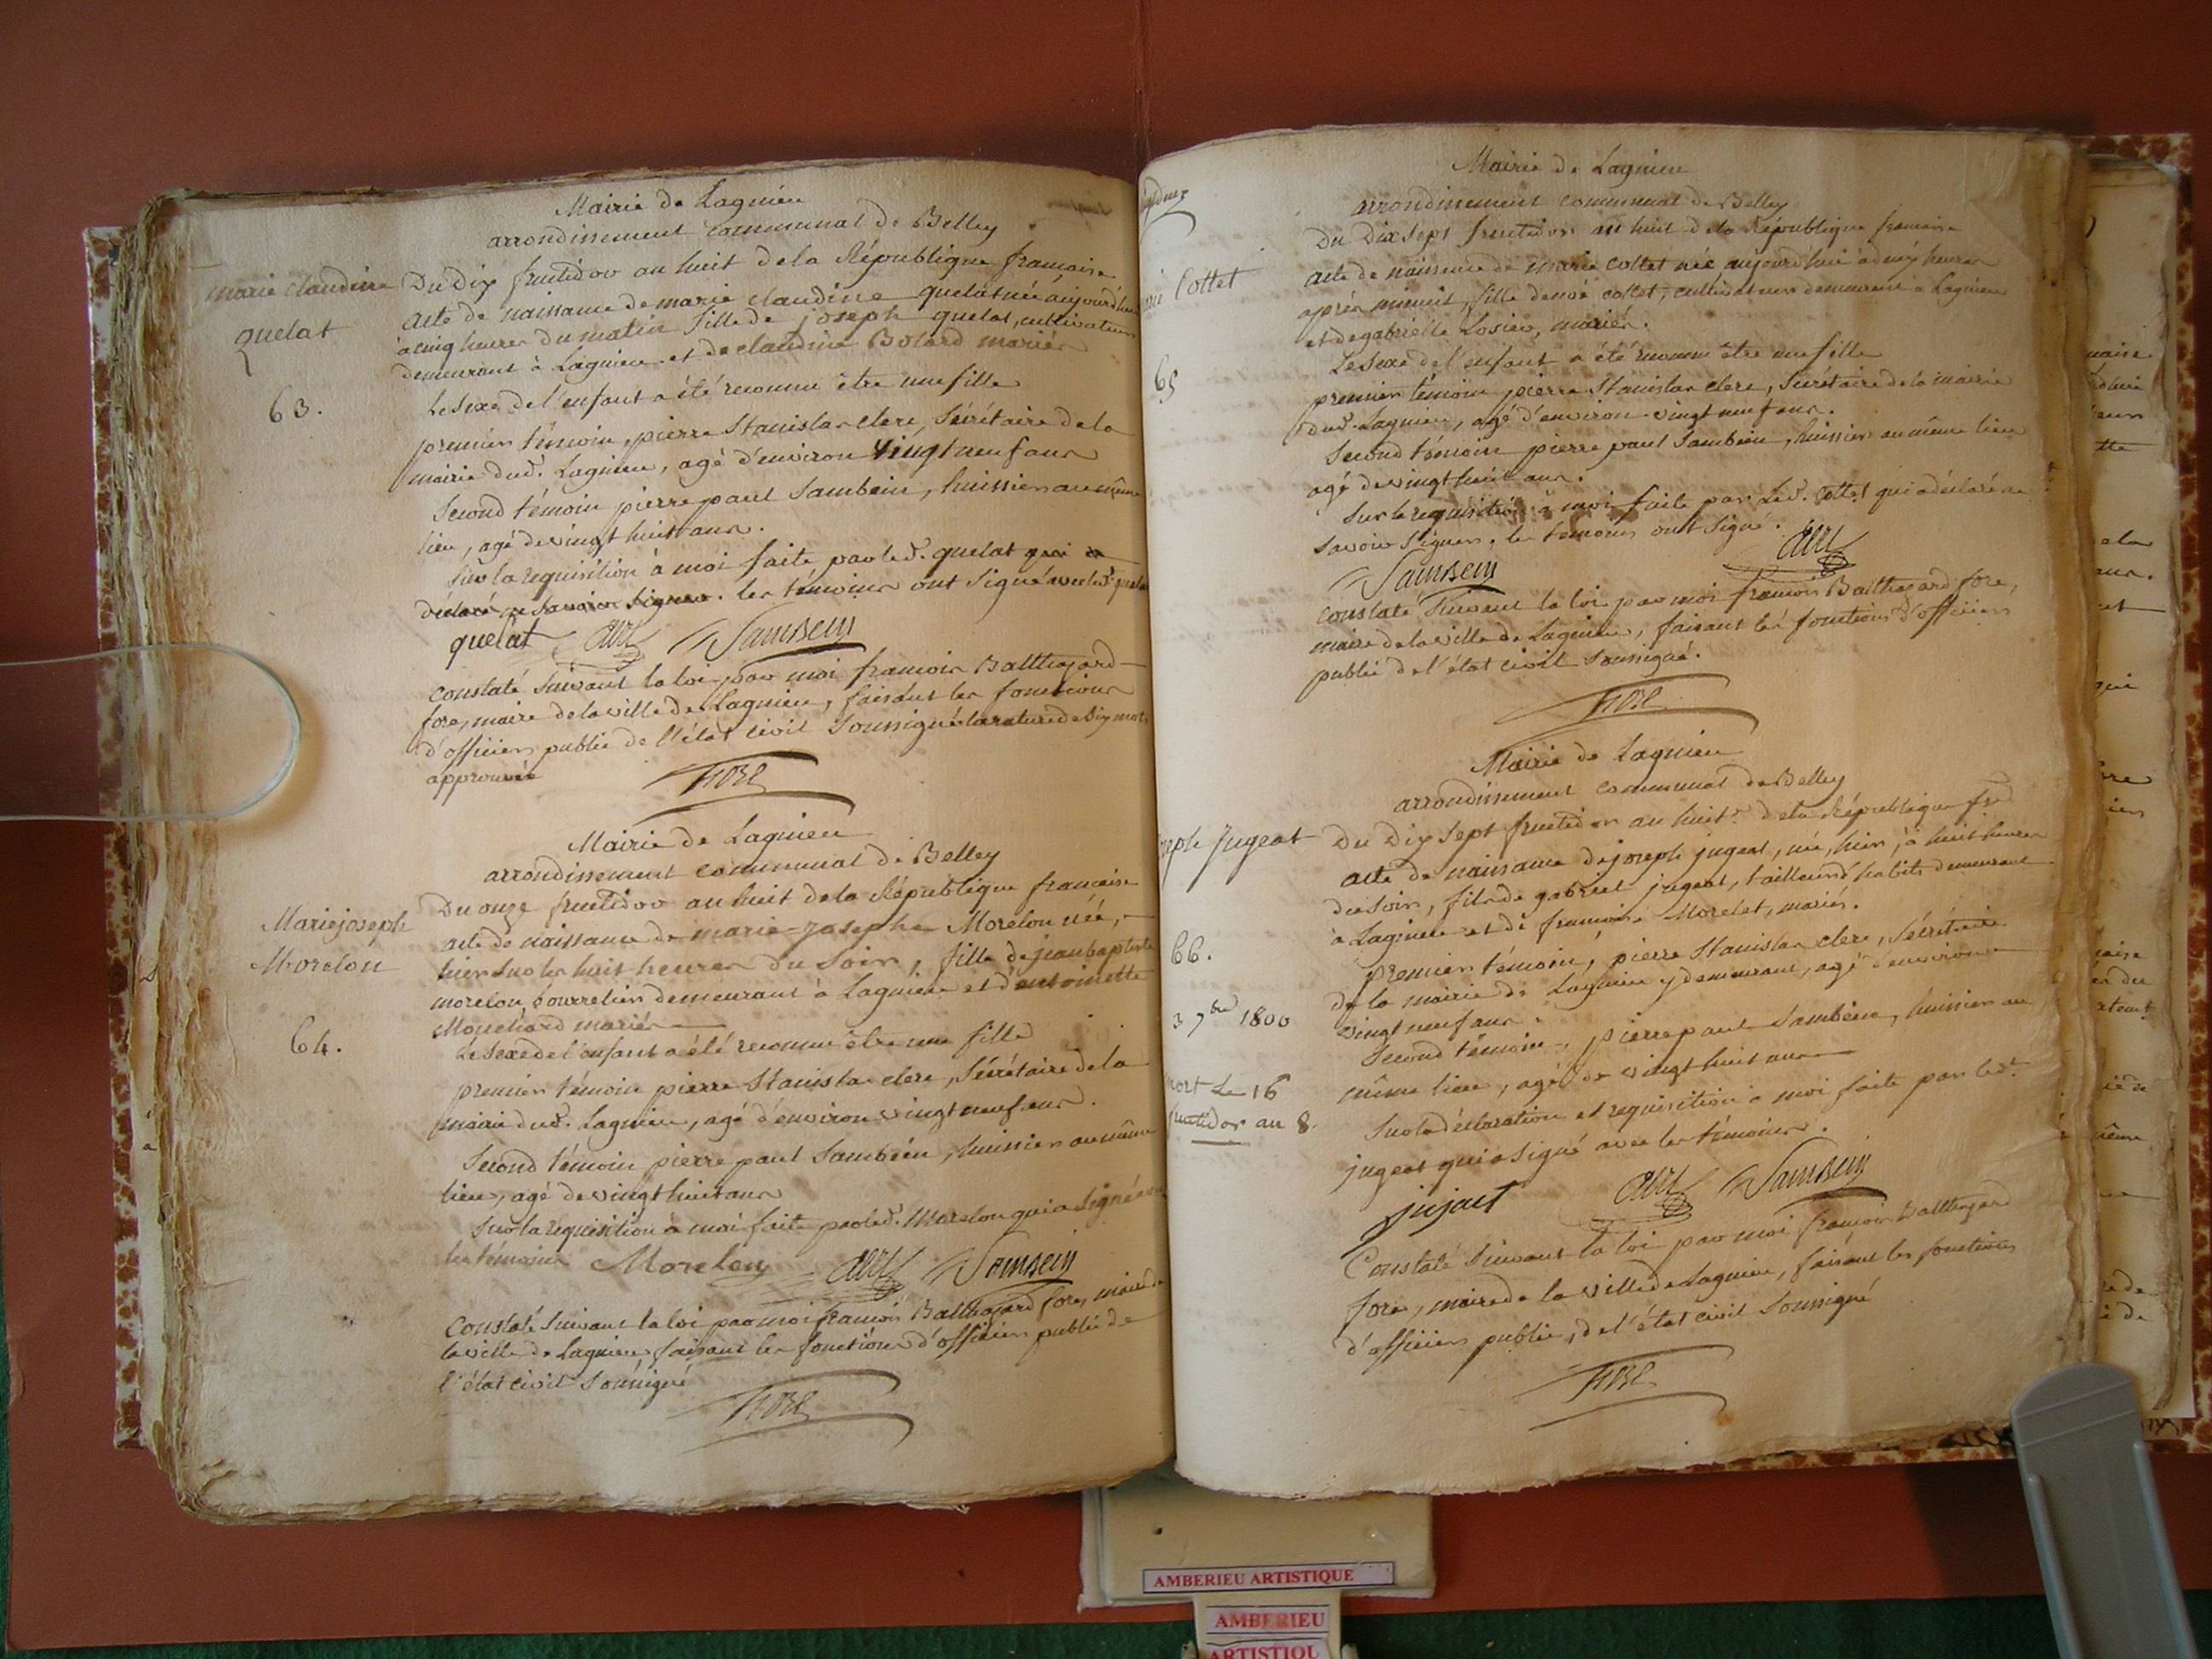 Mairie de Lagnieu
arrondissement communal de Belley
marie claudine
quelat
63.
Du Dix fructidor an huit de la République française
acte de naissance de marie claudine quelat née aujourd'hui
à cinq heures du matin fille de joseph quelat, cultivateur
demeurant à Lagnieu et de claudine Bolard mariés
Le sexe de l'enfant a été reconnu être une fille
premier témoin, pierre Stanislas clerc, Sécrétaire de la
mairie dud. Lagnieu, agé d'environ vingt neuf ans
Second témoin pierre paul Sambein, huissier au même
lieu, agé de vingt huit ans.
Sur la requisition à moi faite par led. quelat qui a
déclaré ne savoir signer. les témoins ont signé avec led. quelat
quelat Clerc Sambein
constaté suivant la loi par moi françois Balthazard
fore, maire de la ville de Lagnieu, faisant les fonctions
d'officier public de l'état civil soussigné la rature de six mots
approuvée
fore
Mairie de Lagnieu
arrondissement communal de Belley
Marie joseph
Morelon
64.
Du onze fructidor an huit de la République française
acte de naissance de marie-josephe Morelon née,
hier sur les huit heures du soir, fille de jean baptiste
morelon bourrelier demeurant à Lagnieu et d'antoinette
mariés
Le sexe de l'enfant a été reconnu être une fille
premier témoin pierre Stanislas clerc, Sécrétaire de la
mairie dud. Lagnieu, agé d'environ vingt neuf ans.
Second témoin pierre paul Sambein, huissier au même
lieu, agé de vingt huit ans
Sur la requisition à moi faite par led. Morelon qui a signé avec
les témoins Morelon Clerc Sambein
Constaté suivant la loi par moi françois Balthazard fore, maire de
la ville de Lagnieu faisant les fonctions d'officier public de
l'état civil soussigné
fore
Mairie de Lagnieu
arrondissement communal de Belley
Cottet
65
Du Dix sept fructidor an huit de la République française
acte de naissance de marie cottet née aujourd'hui à deux heures
après minuit, fille de noé cottet, cultivateur demeurant à Lagnieu
et de gabrielle Losier, mariés.
Le sexe de l'enfant a été reconnu être une fille
premier témoin pierre Stanislas clerc, Sécrétaire de la mairie
dud. Lagnieu, agé d'environ vingt neuf ans.
Second témoin pierre paul Sambein, huissier au même lieu
agé de vingt huit ans.
Sur la requisition à moi faite par led. Cottet qui a déclaré ne
savoir signer, les témoins ont signé.
Sambein Clerc
constaté suivant la loi par moi françois Balthazard fore,
maire de la ville de Lagnieu, faisant les fonctions d'officier
public de l'état civil soussigné.
fore
Mairie de Lagnieu
arrondissement communal de Belley
Jugeat
66.
3 7bre 1800
mort Le 16
fructidor an 8.
Du Dix sept fructidor an huit de la République fse
acte de naissance de joseph jugeat, né, hier, à huit heures
du soir, fils de gabriel jugeat, tailleur d'habits demeurant
à Lagnieu et de françoise Morelet, mariés.
premier témoin, pierre Stanislas clerc, Sécrétaire
de la mairie de Lagnieu y demeurant, agé d'environ
vingt neuf ans.
Second témoin, pierre paul Sambein, huissier au
même lieu, agé de vingt huit ans
Sur la déclaration et requisition à moi faite par led.
jugeat qui a signé avec les témoins.
jujact Clerc Sambein
Constaté suivant la loi par moi françois balthazard
fore, maire de la ville de Lagnieu, faisant les fonctions
d'officier public, de l'état civil soussigné
fore
AMBERIEU ARTISTIQUE
AMBERIEU
ARTISTIQU